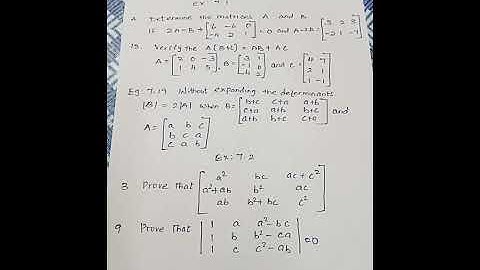 Ex: 7.1
4. Determine the matrices A and B
If 2A-B+[6 -6 0 -4 2 1]=0 and A-2B=[3 2 8 -2 1 -7]
15. Verify the A(B+C) = AB+AC
A=[2 0 -3 1 4 5], B=[3 1 -1 0 4 2] and C=[4 7 2 1 1 -1]
Eg: 7.19 Without expanding the determinants.
|B| = 2|A| when B=[b+c c+a a+b c+a a+b b+c a+b b+c c+a] and
A=[a b c b c a c a b]
Ex: 7.2
3 Prove that [a² bc ac+c² a²+ab b² ac ab b²+bc c²]
9 Prove That |1 a a²-bc 1 b b²-ca 1 c c²-ab| =0